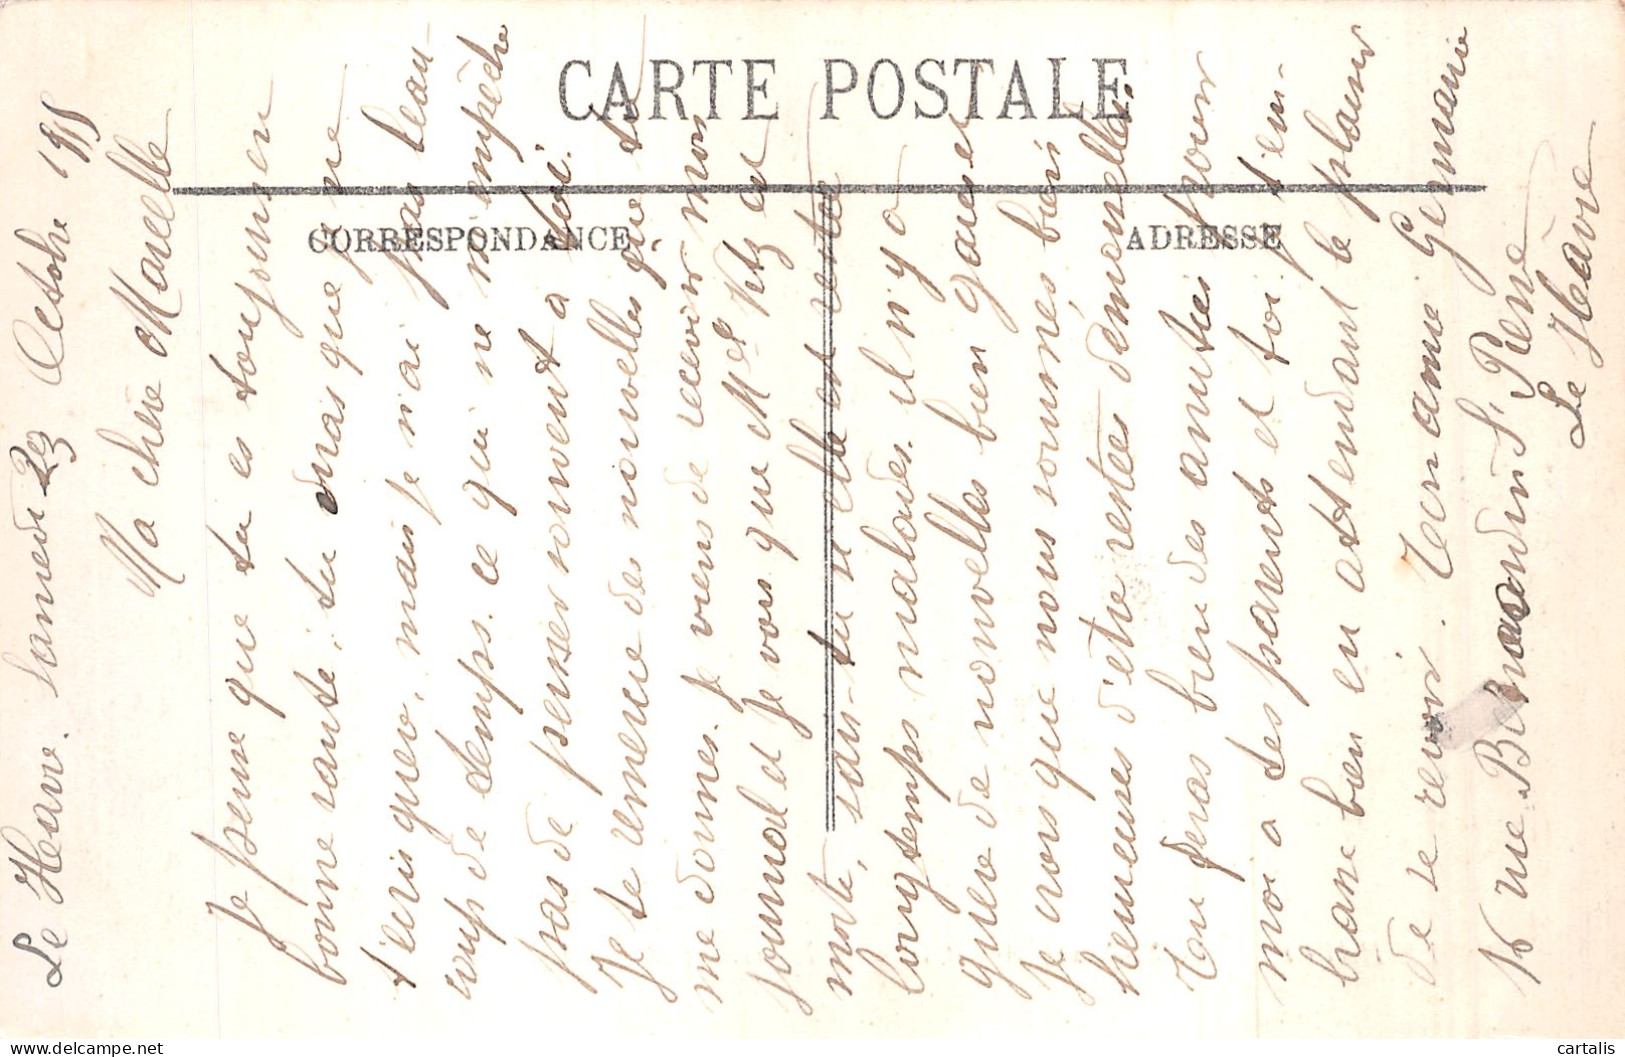 CARTE POSTALE
CORRESPONDANCE
ADRESSE
Le Havre. Samedi 23 Octobre 1915
Ma chère Marcelle
Je pense que tu es toujours en
bonne santé, tu vois que je ne
t'ecris guere, mais je n'ai pas beau-
coup de temps. ce qui ne m'empêche
pas de penser souvent a toi.
Je te remercie des nouvelles que tu
me donnes. Je viens de recevoir mon
journal et je vois que Me est
morte, sais-tu si elle est restée
longtemps malade. il n'y a
guere de nouvelles bien gaies et
Je crois que nous sommes bien
heureuses d'être restées demoiselles.
Tu feras bien des amitiés pour
moi a tes parents et toi, t'em-
brasse bien en attendant le plaisir
de te revoir. Ton amie Germaine
16 rue Bernardin St Pierre
Le Havre
cartalis